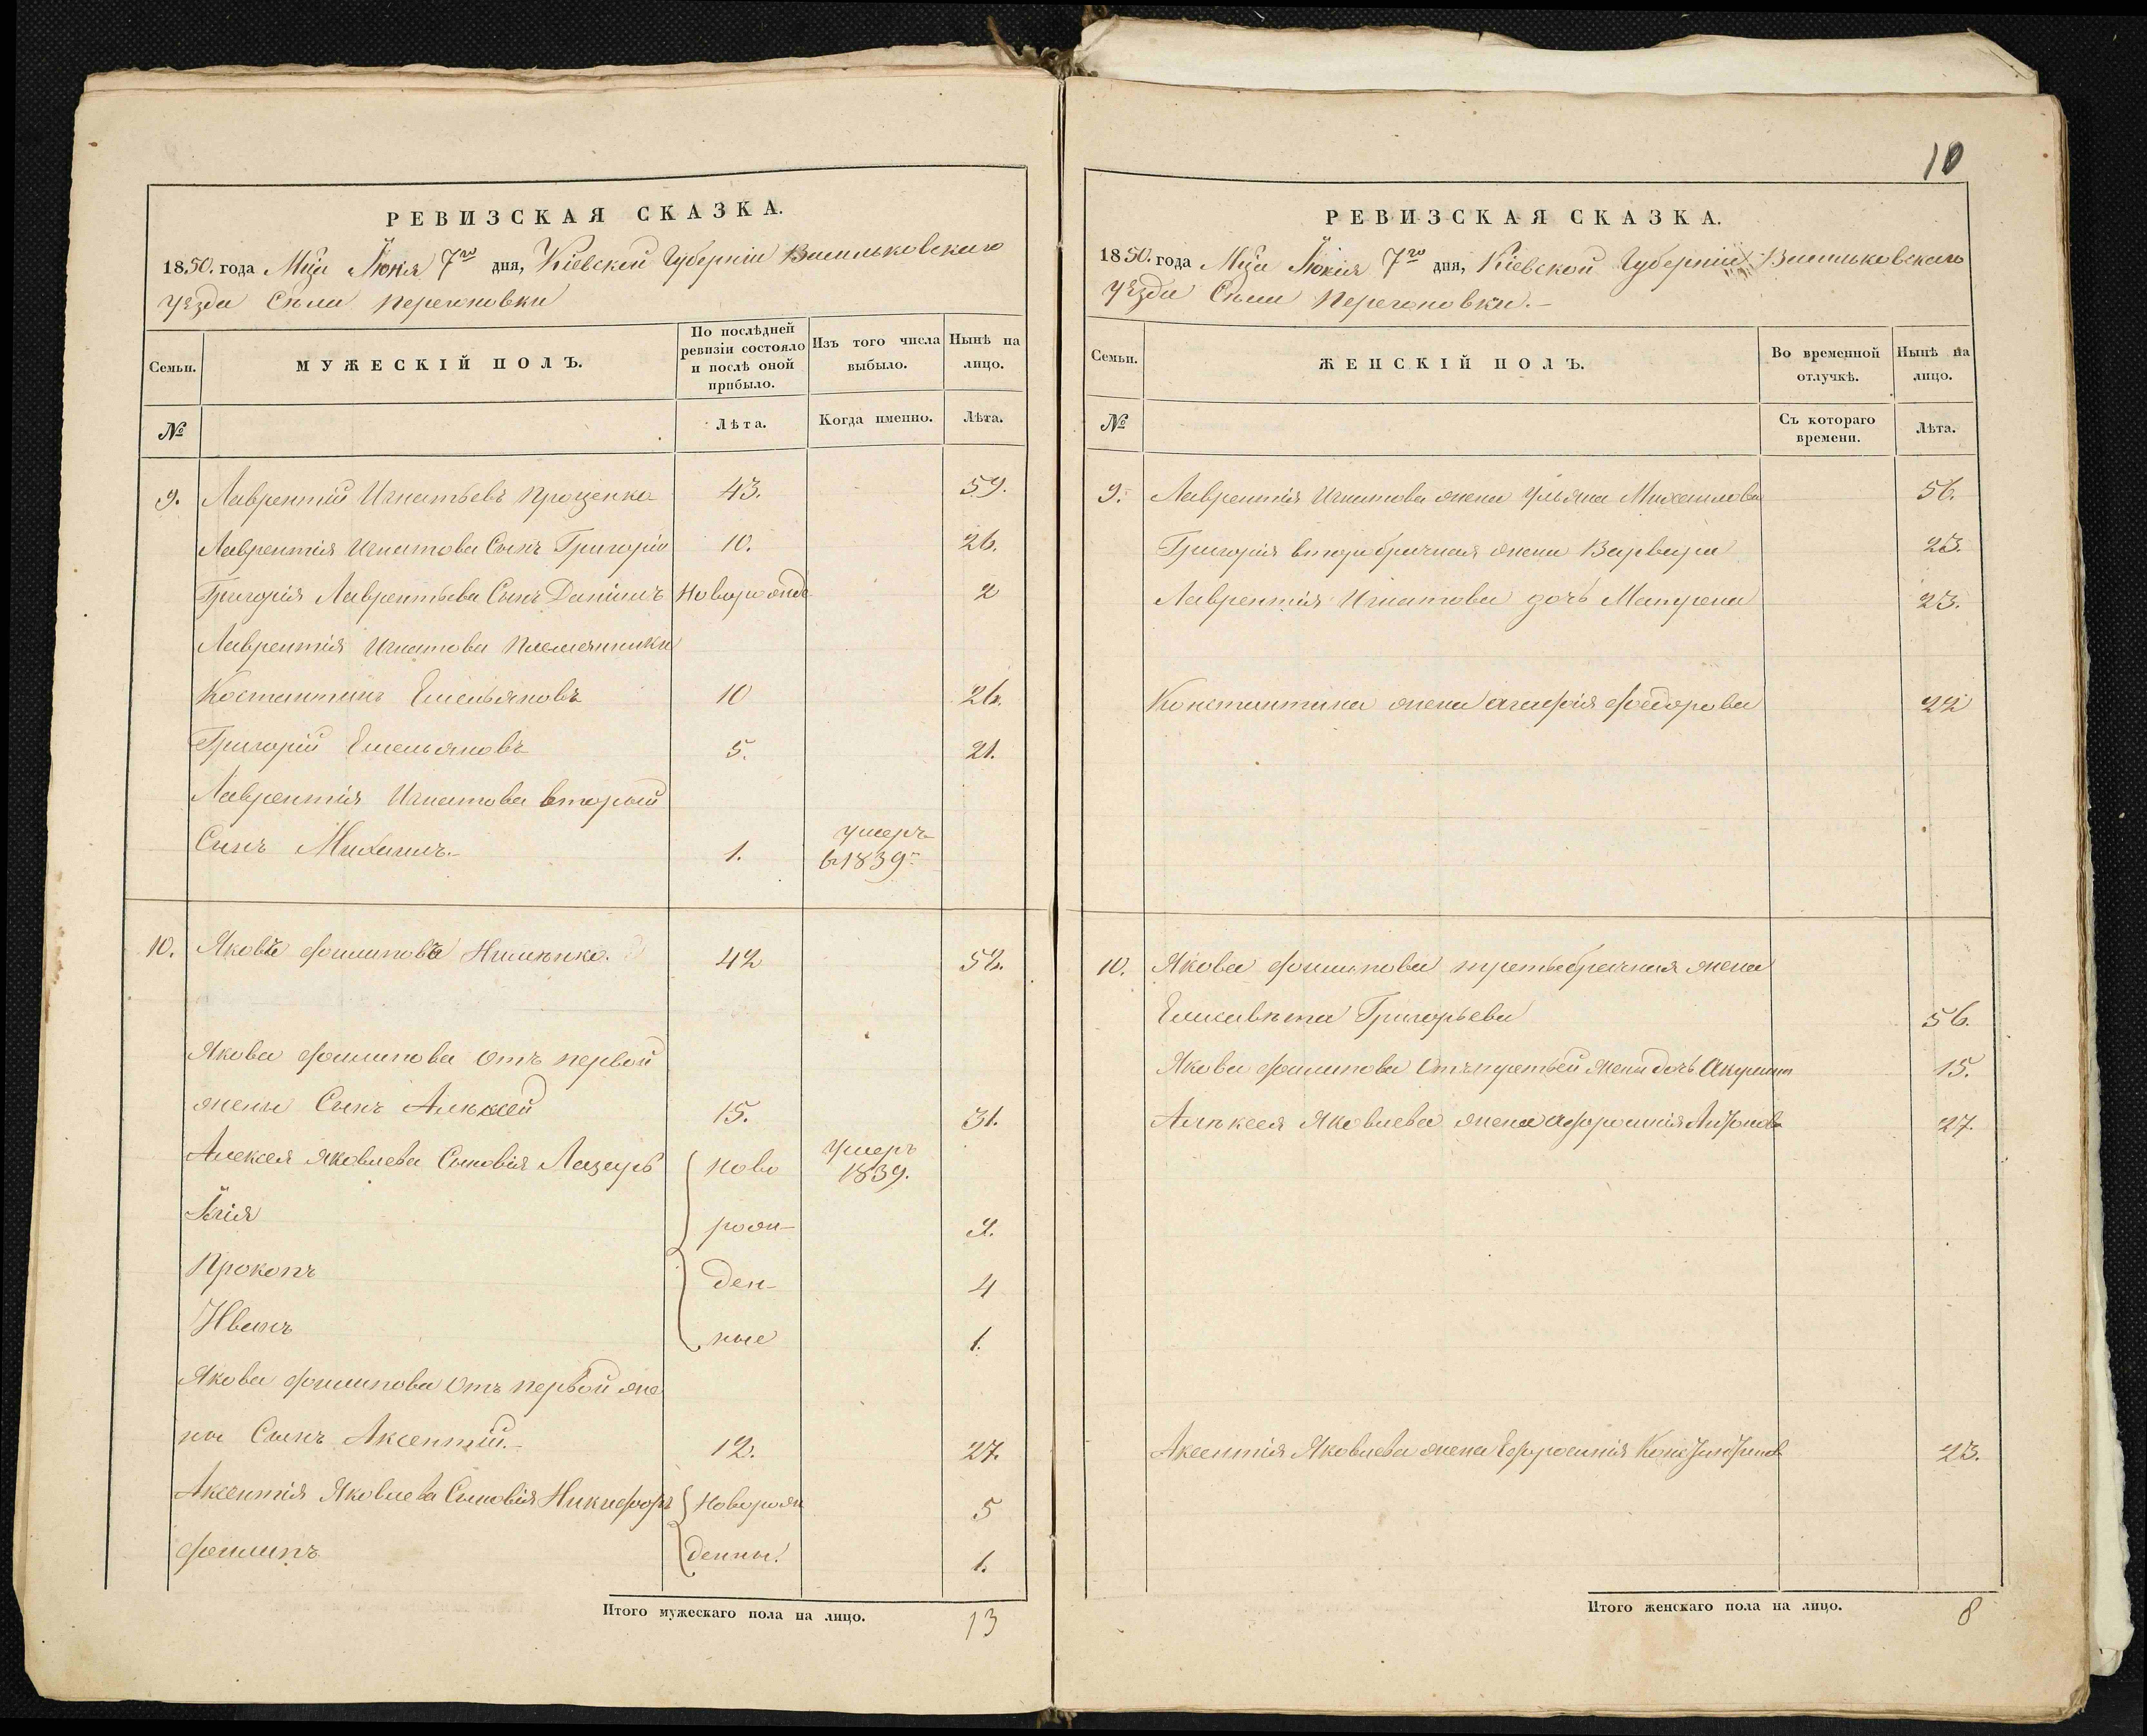 РЕВИЗСКАЯ СКАЗКА.
1850. года Мца Июня 7го дня, Кіевской Губерніи Васильковскаго
уѣзда Села Перегоновки
Семьи.
МУЖЕСКІЙ ПОЛЪ.
По послѣдней ревизіи состояло и послѣ оной прибыло.
Изъ того числа выбыло.
Нынѣ на лицо.
№
Лѣта.
Когда именно.
Лѣта.
9. Лаврентій Игнатьевъ Проценко 43. 59.
Лаврентія Игнатова Сынъ Григорій 10. 26.
Григорія Лаврентьева Сынъ Данiилъ Новорожде 2
Лаврентія Игнатова Племянники
Костантинъ Емельяновъ 10 26.
Григорій Емельяновъ 5. 21.
Лаврентія Игнатова вторый
Сынъ Михаилъ. 1. умеръ в 1839
10. Яковъ Филиповъ 42 58.
Якова Филипова Отъ первой
жены Сынъ Алѣксей 15. 31.
Алексея Яковлева Сыновія Лазарь ново умеръ 1839.
Илія рож- 9.
Прокопъ ден- 4
Иванъ ные 1.
Якова Филипова Отъ первой же
ны Сынъ Аксентій. 12. 27.
Аксентія Яковлева Сыновія Никифоръ Наворож 5
Филипъ денны. 1.
Итого мужескаго пола на лицо. 13
10
РЕВИЗСКАЯ СКАЗКА.
1850. года Мца Июня 7го дня, Кіевской Губерніи Васильковскаго
уѣзда Села Перегоновки.
Семьи.
ЖЕНСКІЙ ПОЛЪ.
Во временной отлучкѣ.
Нынѣ на лицо.
№
Съ котораго времени.
Лѣта.
9. Лаврентія Игнатова жена Ульяна Михаилова 56.
Григорія вторабрачная жена Варвара 23.
Лаврентія Игнатова дочь Матрена 23.
Константина жена Агафія Федорова 22
10. Якова Филипова третьебрачная жена
Елисавѣта Григорьева 56.
Якова Филипова Отъ третьей жены дочь 15.
Алѣксея Яковлева жена Афросинія 27.
Аксентія Яковлева жена Ефросинія 23.
Итого женскаго пола на лицо. 8